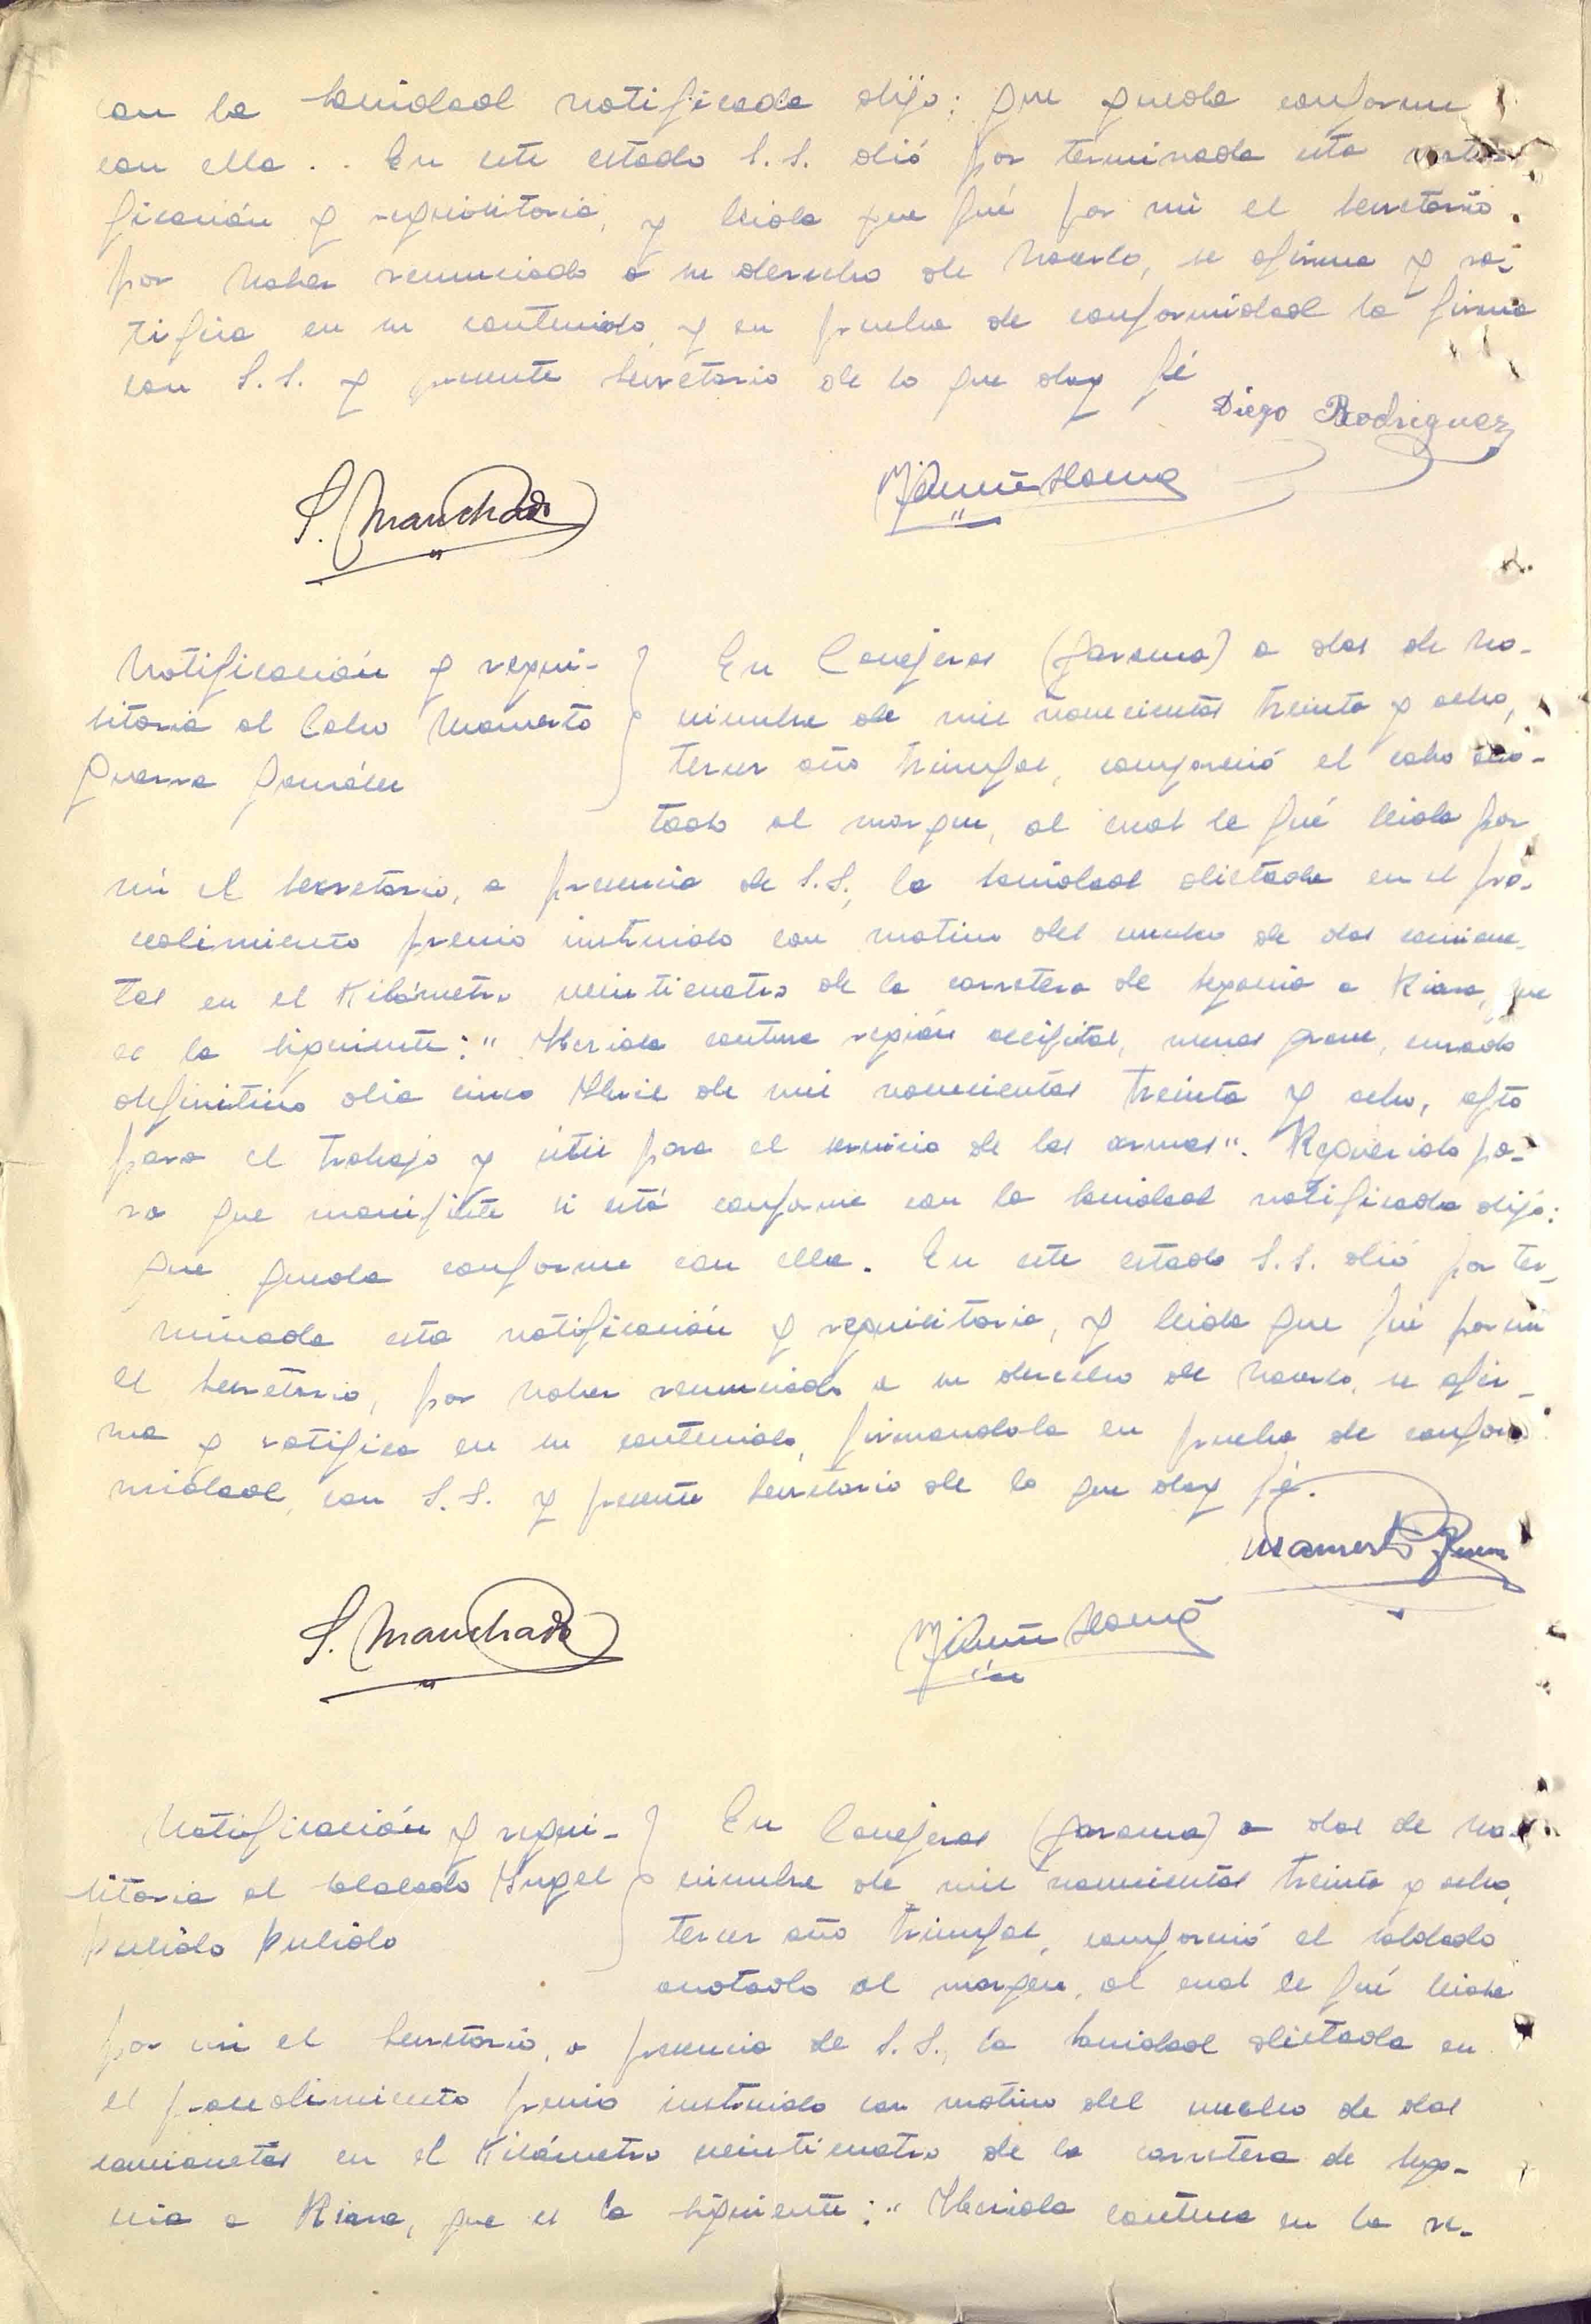 con la sanidad notificada dijo: que queda conforme
con ella. . En este estado S.S. dió por terminada esta noti-
ficación y requisitoria, y leida que fué por mi el Secretario,
por haber renunciado a su derecho de hacerlo, se afirma y ra-
tifica en su contenido, y en prueba de conformidad la firma
con S.S. y presente Secretario de lo que doy fé
Diego Rodriguez
S. Manchado
Notificación y requi-
sitoria al Cabo Mamerto
Guerra González
En Conejeras (Jarama) a dos de no-
viembre de mil novecientos treinta y ocho,
tercer año triunfal, compareció el cabo ano-
tado al margen, al cual le fué leida por
mi el Secretario, a presencia de S.S., la sanidad dictada en el pro-
cedimiento previo instruido con motivo del vuelco de dos camione-
tas en el Kilómetro veinticuatro de la carretera de Segovia a Riaza, que
es la siguiente: "Herida contusa región occipital, menos grave, curado
definitivo dia cinco Abril de mil novecientos treinta y ocho, apto
para el trabajo y útil para el servicio de las armas". Requerido pa-
ra que manifieste si está conforme con la sanidad notificada dijo:
que queda conforme con ella. En este estado S.S. dió por ter-
minada esta notificación y requisitoria, y leida que fué por mi
el Secretario, por haber renunciado a su derecho de hacerlo, se afir-
ma y ratifica en su contenido, firmandola en prueba de confor-
midad, con S.S. y presente Secretario de lo que doy fé.
Mamerto Guerra
S. Manchado
Notificación y requi-
sitoria al soldado Angel
Pulido Pulido
En Conejeras (Jarama) a dos de no-
viembre de mil novecientos treinta y ocho,
tercer año triunfal, compareció el soldado
anotado al margen, al cual le fué leida
por mi el Secretario, a presencia de S.S., la sanidad dictada en
el procedimiento previo instruido con motivo del vuelco de dos
camionetas en el Kilómetro veinticuatro de la carretera de Sego-
via a Riaza, que es la siguiente: "Herida contusa en la re-